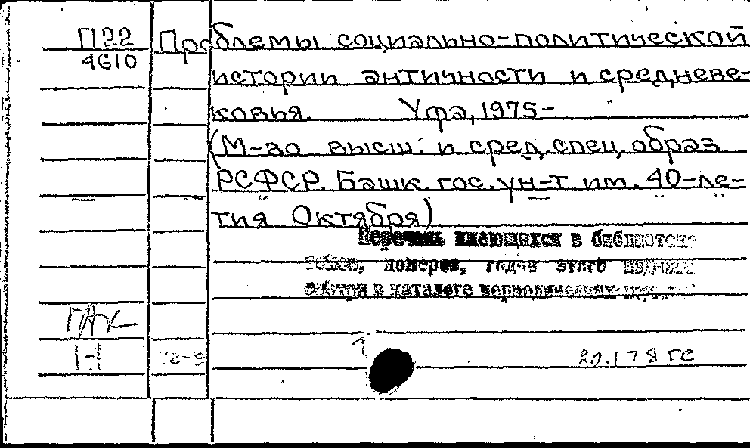 П22
4610
Проблемы социально-политической
истории античности и средневе-
ковья. Уфа, 1975-
(М-во высш. и сред. спец. образ.
РСФСР. Башк. гос. ун-т им. 40-ле-
тия Октября)
Перечень имеющихся в библиотеке
томов, номеров, годов этого издания
смотри в каталоге периодических